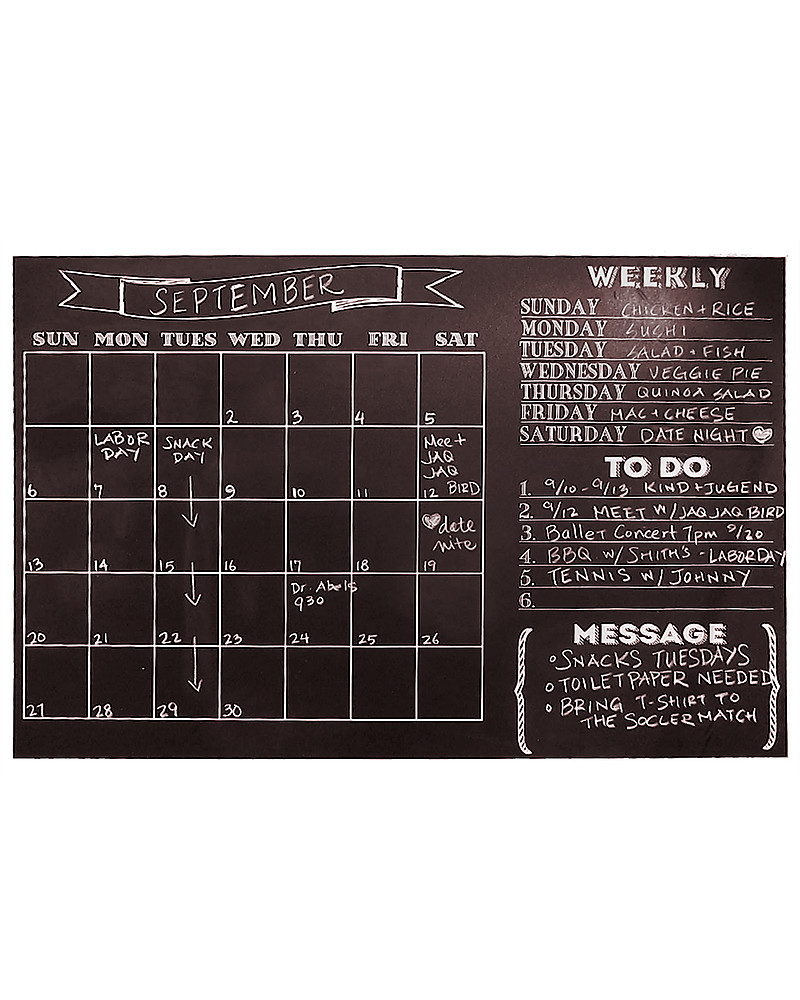 SEPTEMBER
SUN MON TUES WED THU FRI SAT
2 3 4 5
LABOR DAY
SNACK DAY
Meet JAQ JAQ BIRD
6 7 8 9 10 11 12
♥date nite
13 14 15 16 17 18 19
Dr. Abels 930
20 21 22 23 24 25 26
27 28 29 30
WEEKLY
SUNDAY CHICKEN + RICE
MONDAY SUSHI
TUESDAY SALAD + FISH
WEDNESDAY VEGGIE PIE
THURSDAY QUINOA SALAD
FRIDAY MAC + CHEESE
SATURDAY DATE NIGHT ♥
TO DO
1. 9/10 - 9/13 KIND + JUGEND
2. 9/12 MEET W/ JAQ JAQ BIRD
3. Ballet Concert 7pm 9/20
4. BBQ W/ SMITH'S - LABORDAY
5. TENNIS W/ JOHNNY
6.
MESSAGE
° SNACKS TUESDAYS
° TOILET PAPER NEEDED
° BRING T-SHIRT TO
THE SOCCER MATCH